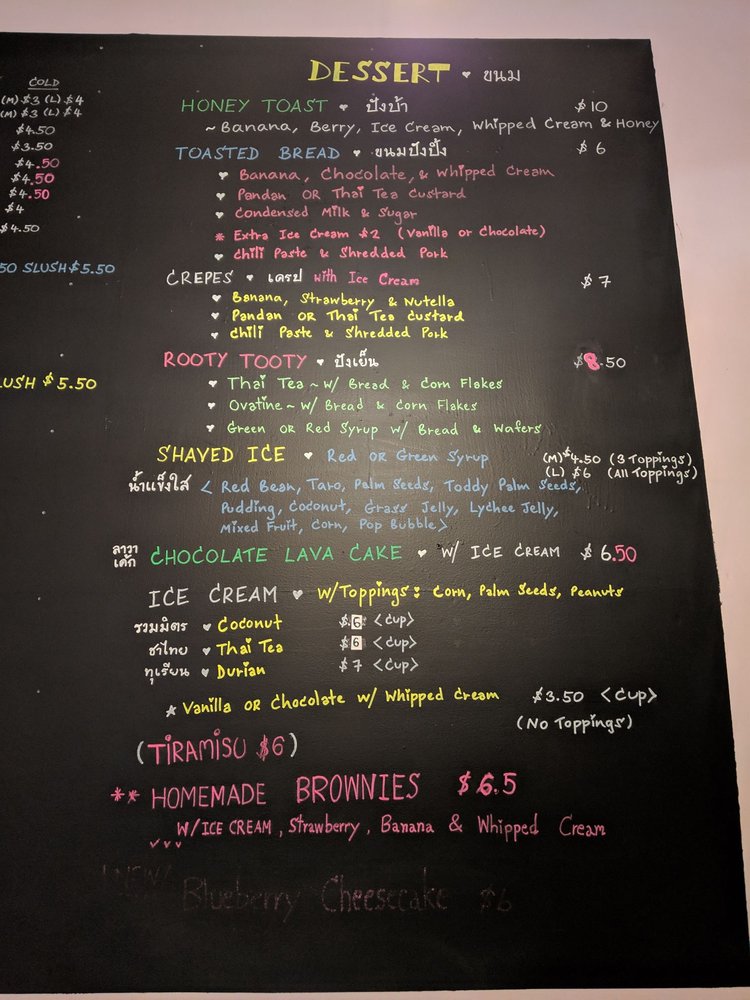 COLD
(M) $3 (L) $4
(M) $3 (L) $4
$4.50
$3.50
$4.50
$4.50
$4.50
$4
$4.50
50 SLUSH $5.50
LUSH $5.50
DESSERT ♥ ขนม
HONEY TOAST ♥ ปังป้า $10
~ Banana, Berry, Ice Cream, Whipped Cream & Honey
TOASTED BREAD ♥ ขนมปังปิ้ง $6
♥ Banana, Chocolate, & Whipped Cream
♥ Pandan OR Thai Tea Custard
♥ Condensed Milk & Sugar
* Extra Ice Cream $2 (Vanilla or Chocolate)
♥ Chili Paste & Shredded Pork
CREPES ♥ เครป with Ice Cream $7
♥ Banana, Strawberry & Nutella
♥ Pandan OR Thai Tea Custard
♥ Chili Paste & Shredded Pork
ROOTY TOOTY ♥ ปังเย็น $8.50
♥ Thai Tea ~ w/ Bread & Corn Flakes
♥ Ovatine ~ w/ Bread & Corn Flakes
♥ Green OR Red Syrup w/ Bread & Wafers
SHAVED ICE ♥ Red OR Green Syrup (M) $4.50 (3 Toppings)
(L) $6 (All Toppings)
น้ำแข็งใส < Red Bean, Taro, Palm Seeds, Toddy Palm Seeds,
Pudding, Coconut, Grass Jelly, Lychee Jelly,
Mixed Fruit, Corn, Pop Bubble >
ลาวา เค้ก CHOCOLATE LAVA CAKE ♥ W/ ICE CREAM $6.50
ICE CREAM ♥ w/Toppings: Corn, Palm Seeds, Peanuts
รวมมิตร ♥ Coconut $6 <Cup>
ชาไทย ♥ Thai Tea $6 <Cup>
ทุเรียน ♥ Durian $7 <Cup>
☆ Vanilla OR Chocolate w/ Whipped Cream $3.50 <Cup>
(No Toppings)
(TIRAMISU $6)
** HOMEMADE BROWNIES $6.5
W/ICE CREAM, Strawberry, Banana & Whipped Cream
! NEW!
Blueberry Cheesecake $6